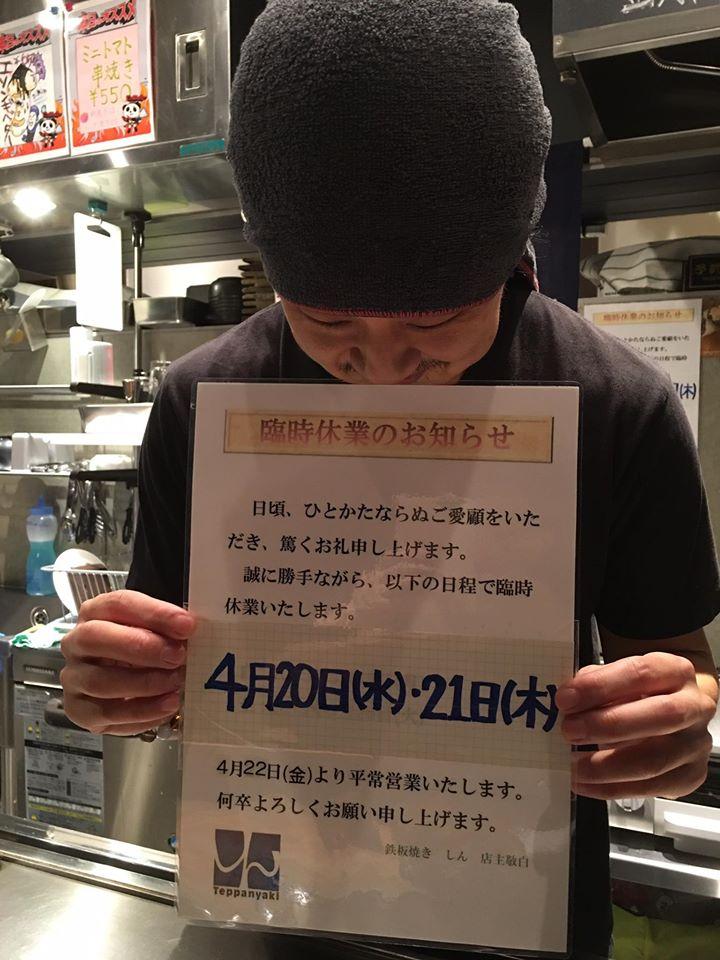 ミニトマト
串焼き
¥550
臨時休業のお知らせ
日頃、ひとかたならぬご愛顧をいた
だき、篤くお礼申し上げます。
誠に勝手ながら、以下の日程で臨時
休業いたします。
4月20日(水)・21日(木)
4月22日(金)より平常営業いたします。
何卒よろしくお願い申し上げます。
鉄板焼き しん 店主敬白
しん
Teppanyaki
臨時休業のお知らせ
(木)